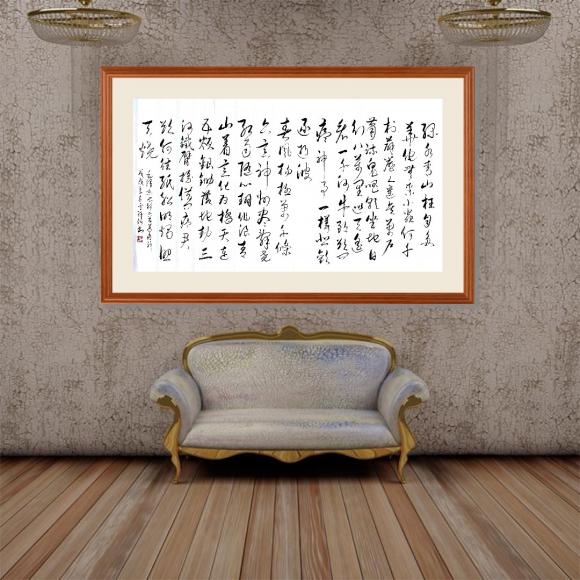 绿水青山枉自多
华佗无奈小虫何千
村薜荔人遗矢万户
萧疏鬼唱歌坐地日
行八万里巡天遥
看一千河牛郎欲问
瘟神事一样悲欢
逐逝波
春风杨柳万千条
六亿神州尽舜尧
红雨随心翻作浪青
山着意化为桥天连
五岭银锄落地动三
河铁臂摇借问瘟君
欲何往纸船明烛照
天烧
毛泽东七律二首送瘟神